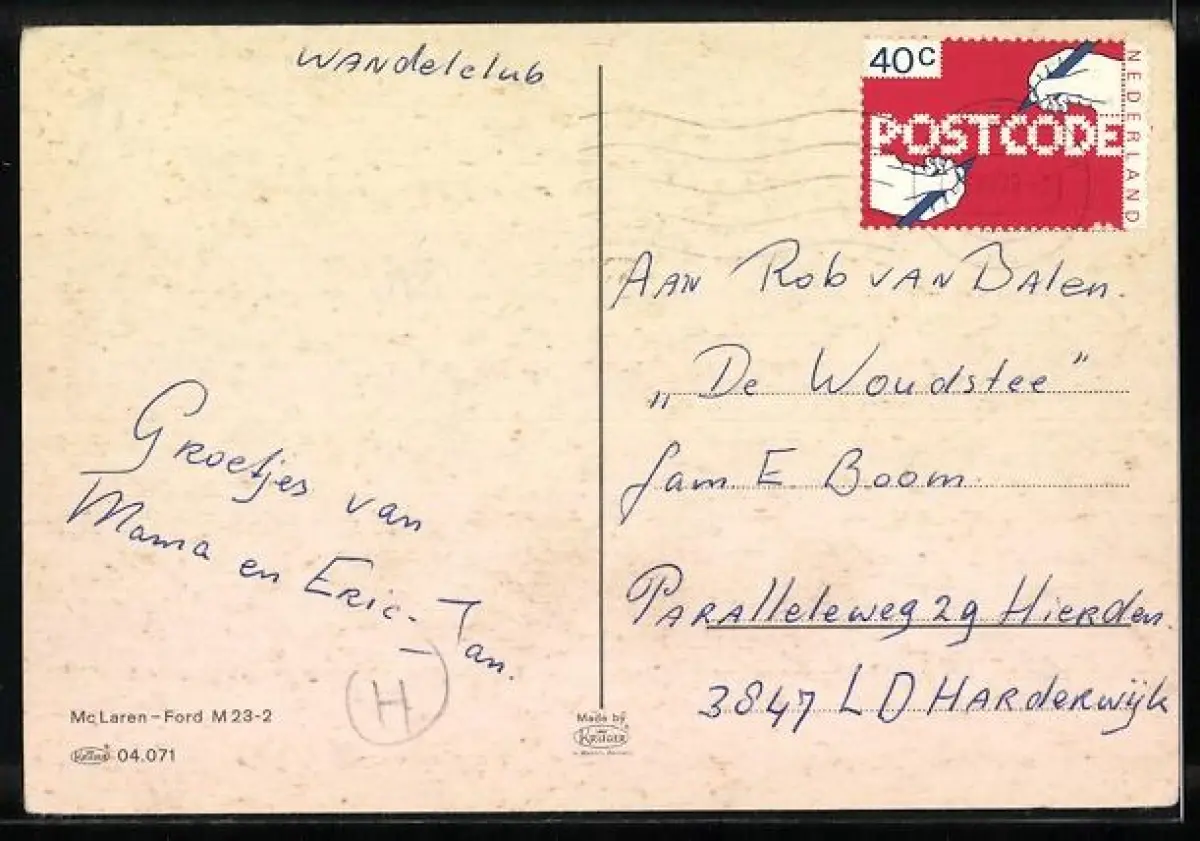 WANdelclub
40c
POSTCODE
NEDERLAND
AAN Rob VAN BAlen.
„De Woudstee”
fam. E. Boom.
PARAlleleweg 29 HiERden.
3847 LD HARderwijk
GRoetjes van
Mama en ERic-Jan.
H
Mc Laren-Ford M 23-2
KRÜGER 04.071
Made by
KRÜGER